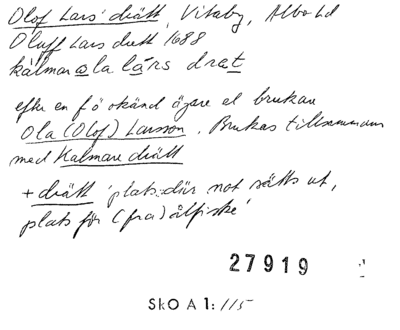 Olof Lars' drätt, Vitaby, Albo hd
Oluff Lars drett 1688
kalmar ola lårs drat
efter en f ö okänd ägare el brukare
Ola (Olof) Larsson. Brukas tillsammans
med Kalmare drätt
+ drätt 'plats där not sätts ut,
plats för (fra) ålfiske'
27919
SkO A 1: 115